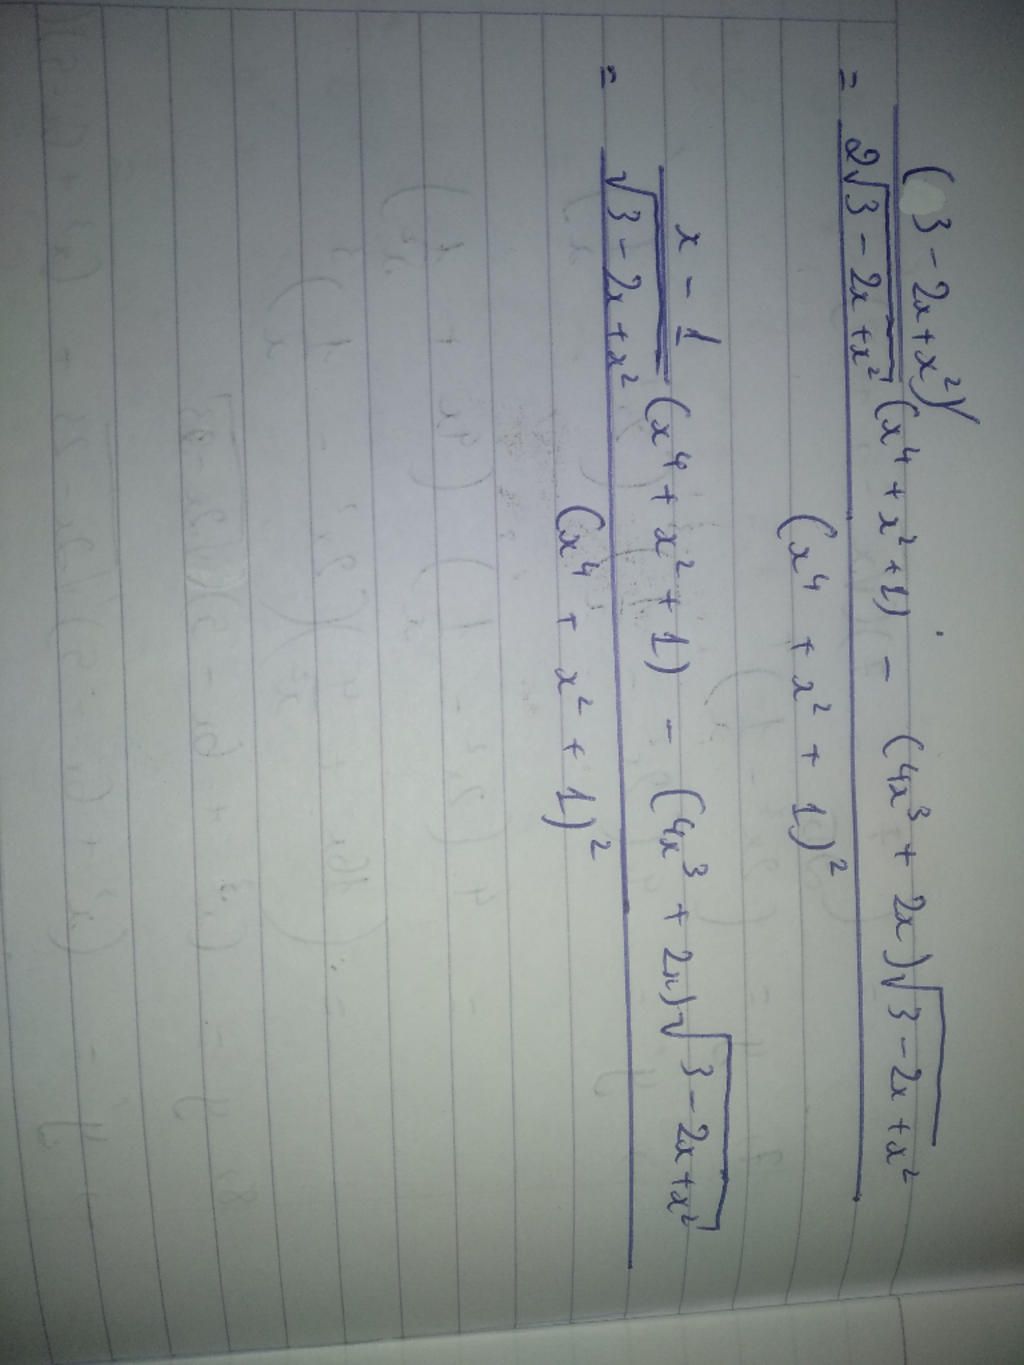 = \frac{\frac{(3 - 2x + x^2)'}{2\sqrt{3 - 2x + x^2}} (x^4 + x^2 + 1) - (4x^3 + 2x)\sqrt{3 - 2x + x^2}}{(x^4 + x^2 + 1)^2}
= \frac{\frac{x - 1}{\sqrt{3 - 2x + x^2}} (x^4 + x^2 + 1) - (4x^3 + 2x)\sqrt{3 - 2x + x^2}}{(x^4 + x^2 + 1)^2}